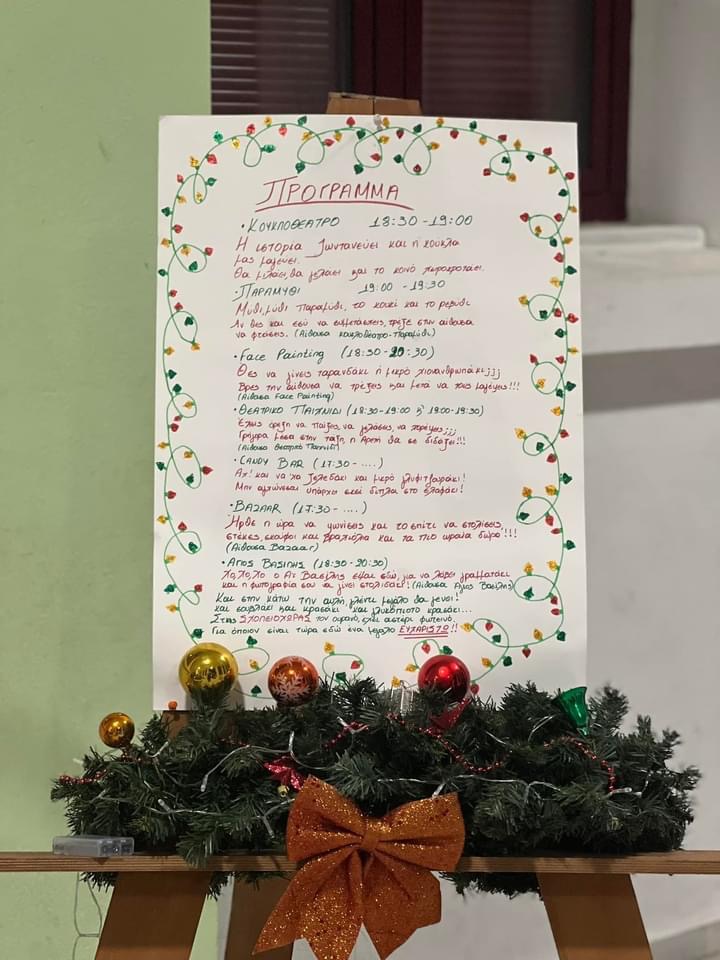 ΠΡΟΓΡΑΜΜΑ
• ΚΟΥΚΛΟΘΕΑΤΡΟ 18:30 - 19:00
Η ιστορία ζωντανεύει και η κούκλα
μας μαγεύει.
Θα μιλάει, θα γελάει και το κοινό χειροκροτάει.
• ΠΑΡΑΜΥΘΙ 19:00 - 19:30
Μύθι, μύθι παραμύθι, το κουκί και το ρεβύθι
Αν θες και εσύ να συμμετάσχεις, τρέξε στην αίθουσα
να φτάσεις. (Αίθουσα κουκλοθέατρο-Παραμύθι)
• Face Painting (18:30 - 20:30)
Θες να γίνεις ταρανδάκι ή μικρό χιονανθρωπάκι;;;
Βρες την αίθουσα να τρέξεις και μετά να τους μαγέψεις!!!
(Αίθουσα Face Painting)
• ΘΕΑΤΡΙΚΟ ΠΑΙΧΝΙΔΙ (18:30-19:00 κ' 19:00-19:30)
Έχεις όρεξη να παίξεις, να γελάσεις, να χορέψεις;;;
Γρήγορα μέσα στην τάξη, η Αρετή θα σε διδάξει!!!
(Αίθουσα Θεατρικό Παιχνίδι)
• CANDY BAR (17:30 - ....)
Αχ! και να 'χα ζελεδάκι και μικρό γλυφιτζουράκι!
Μην αγχώνεσαι υπάρχει εκεί δίπλα στο ελαφάκι!
• BAZAAR (17:30 - ....)
Ήρθε η ώρα να ψωνίσεις και το σπίτι να στολίσεις,
στέκες, σκούφοι και βραχιόλια και τα πιο ωραία δώρα!!!
(Αίθουσα Bazaar)
• ΑΓΙΟΣ ΒΑΣΙΛΗΣ (18:30 - 20:30)
Χο, χο, χο ο Αϊ Βασίλης είναι εδώ, για να λάβει γραμματάκι
και η φωτογραφία σου να γίνει στολιδάκι! (Αίθουσα Άγιος Βασίλης)
Και στην κάτω την αυλή, γλέντι μεγάλο θα γενεί!
και σουβλάκι και κρασάκι και γλυκόπιοτο κρασάκι...
Στης ΣΧΟΛΕΙΟΧΩΡΑΣ τον ουρανό, έχει αστέρι φωτεινό.
Για όποιον είναι τώρα εδώ ένα μεγάλο ΕΥΧΑΡΙΣΤΩ!!